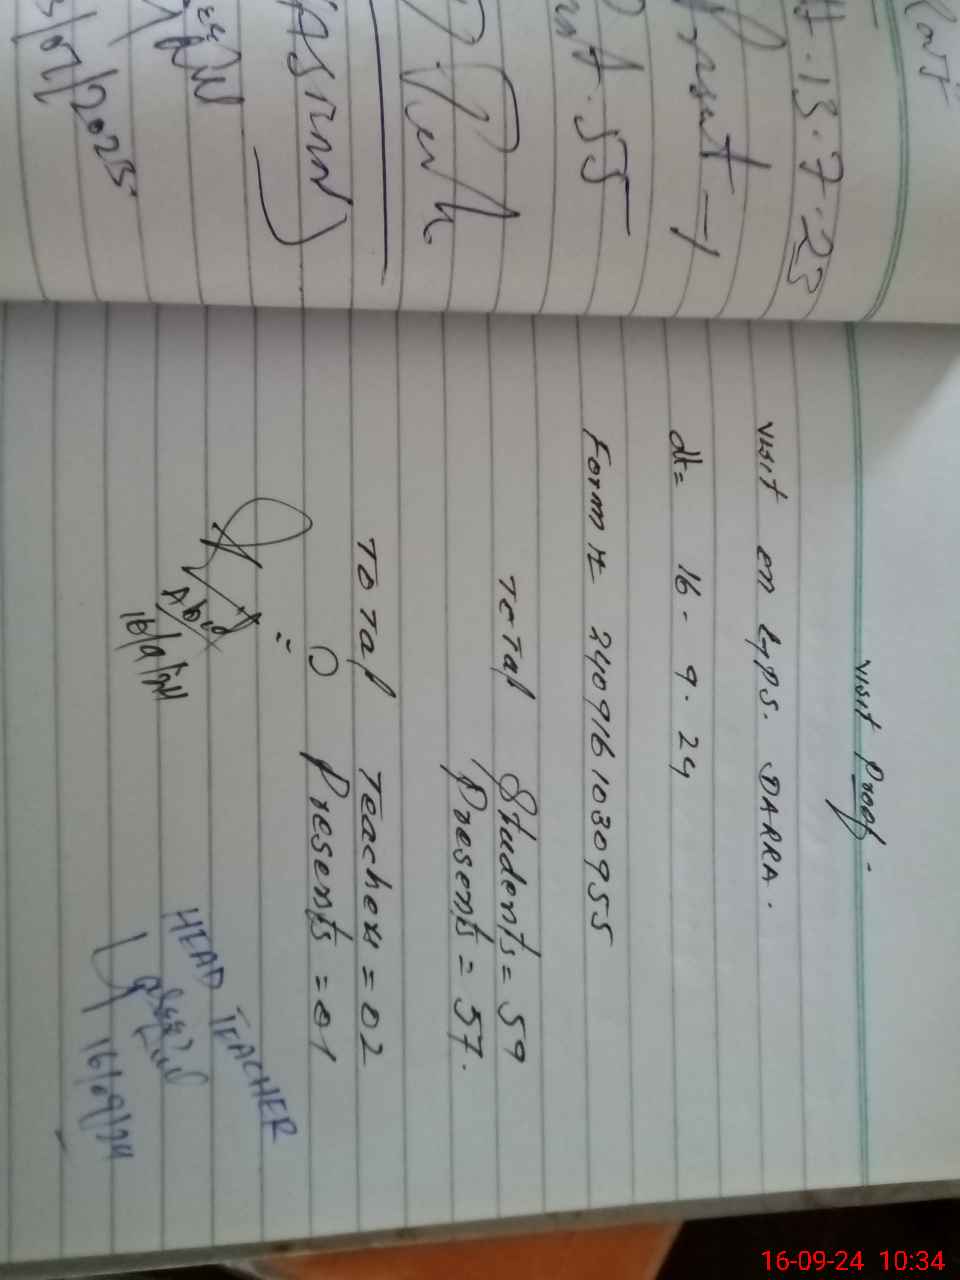 visit Proof.
visit on LPS. DARRA.
dt= 16-9-24
Form # 2409161030955
Total Students= 59
Presents = 57.
Total Teacher = 02
Presents = 01
Abid
16/9/24
HEAD TEACHER
16/09/24
dt. 13.7.23
Present - 1
55
3/01/2025
16-09-24 10:34